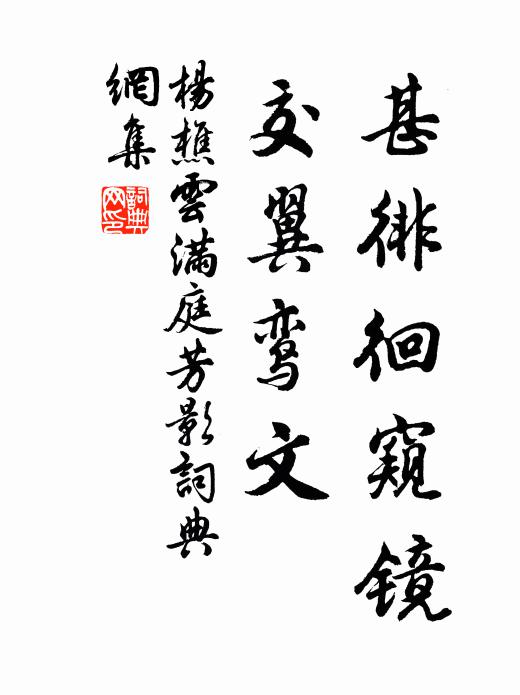 甚徘徊窺镜
交翼鸾文
楊樵雲滿庭芳影詞典
網集
詞典
网印